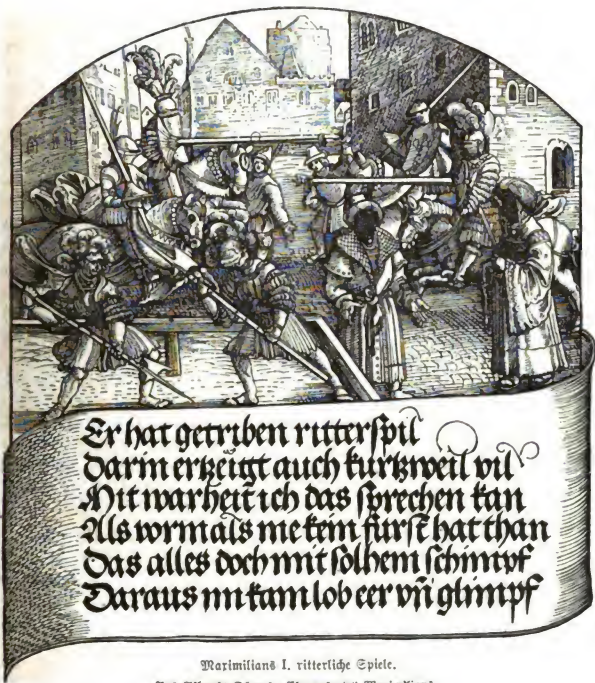 Er hat getriben ritterspil
Darin erzeigt auch kurtzweil vil
Mit warheit ich das sprechen kan
Als vormals nie kein fürst hat than
Das alles doch mit solhem schimpf
Daraus im kam lob eer vn̄ glimpf
Maximilians I. ritterliche Spiele.